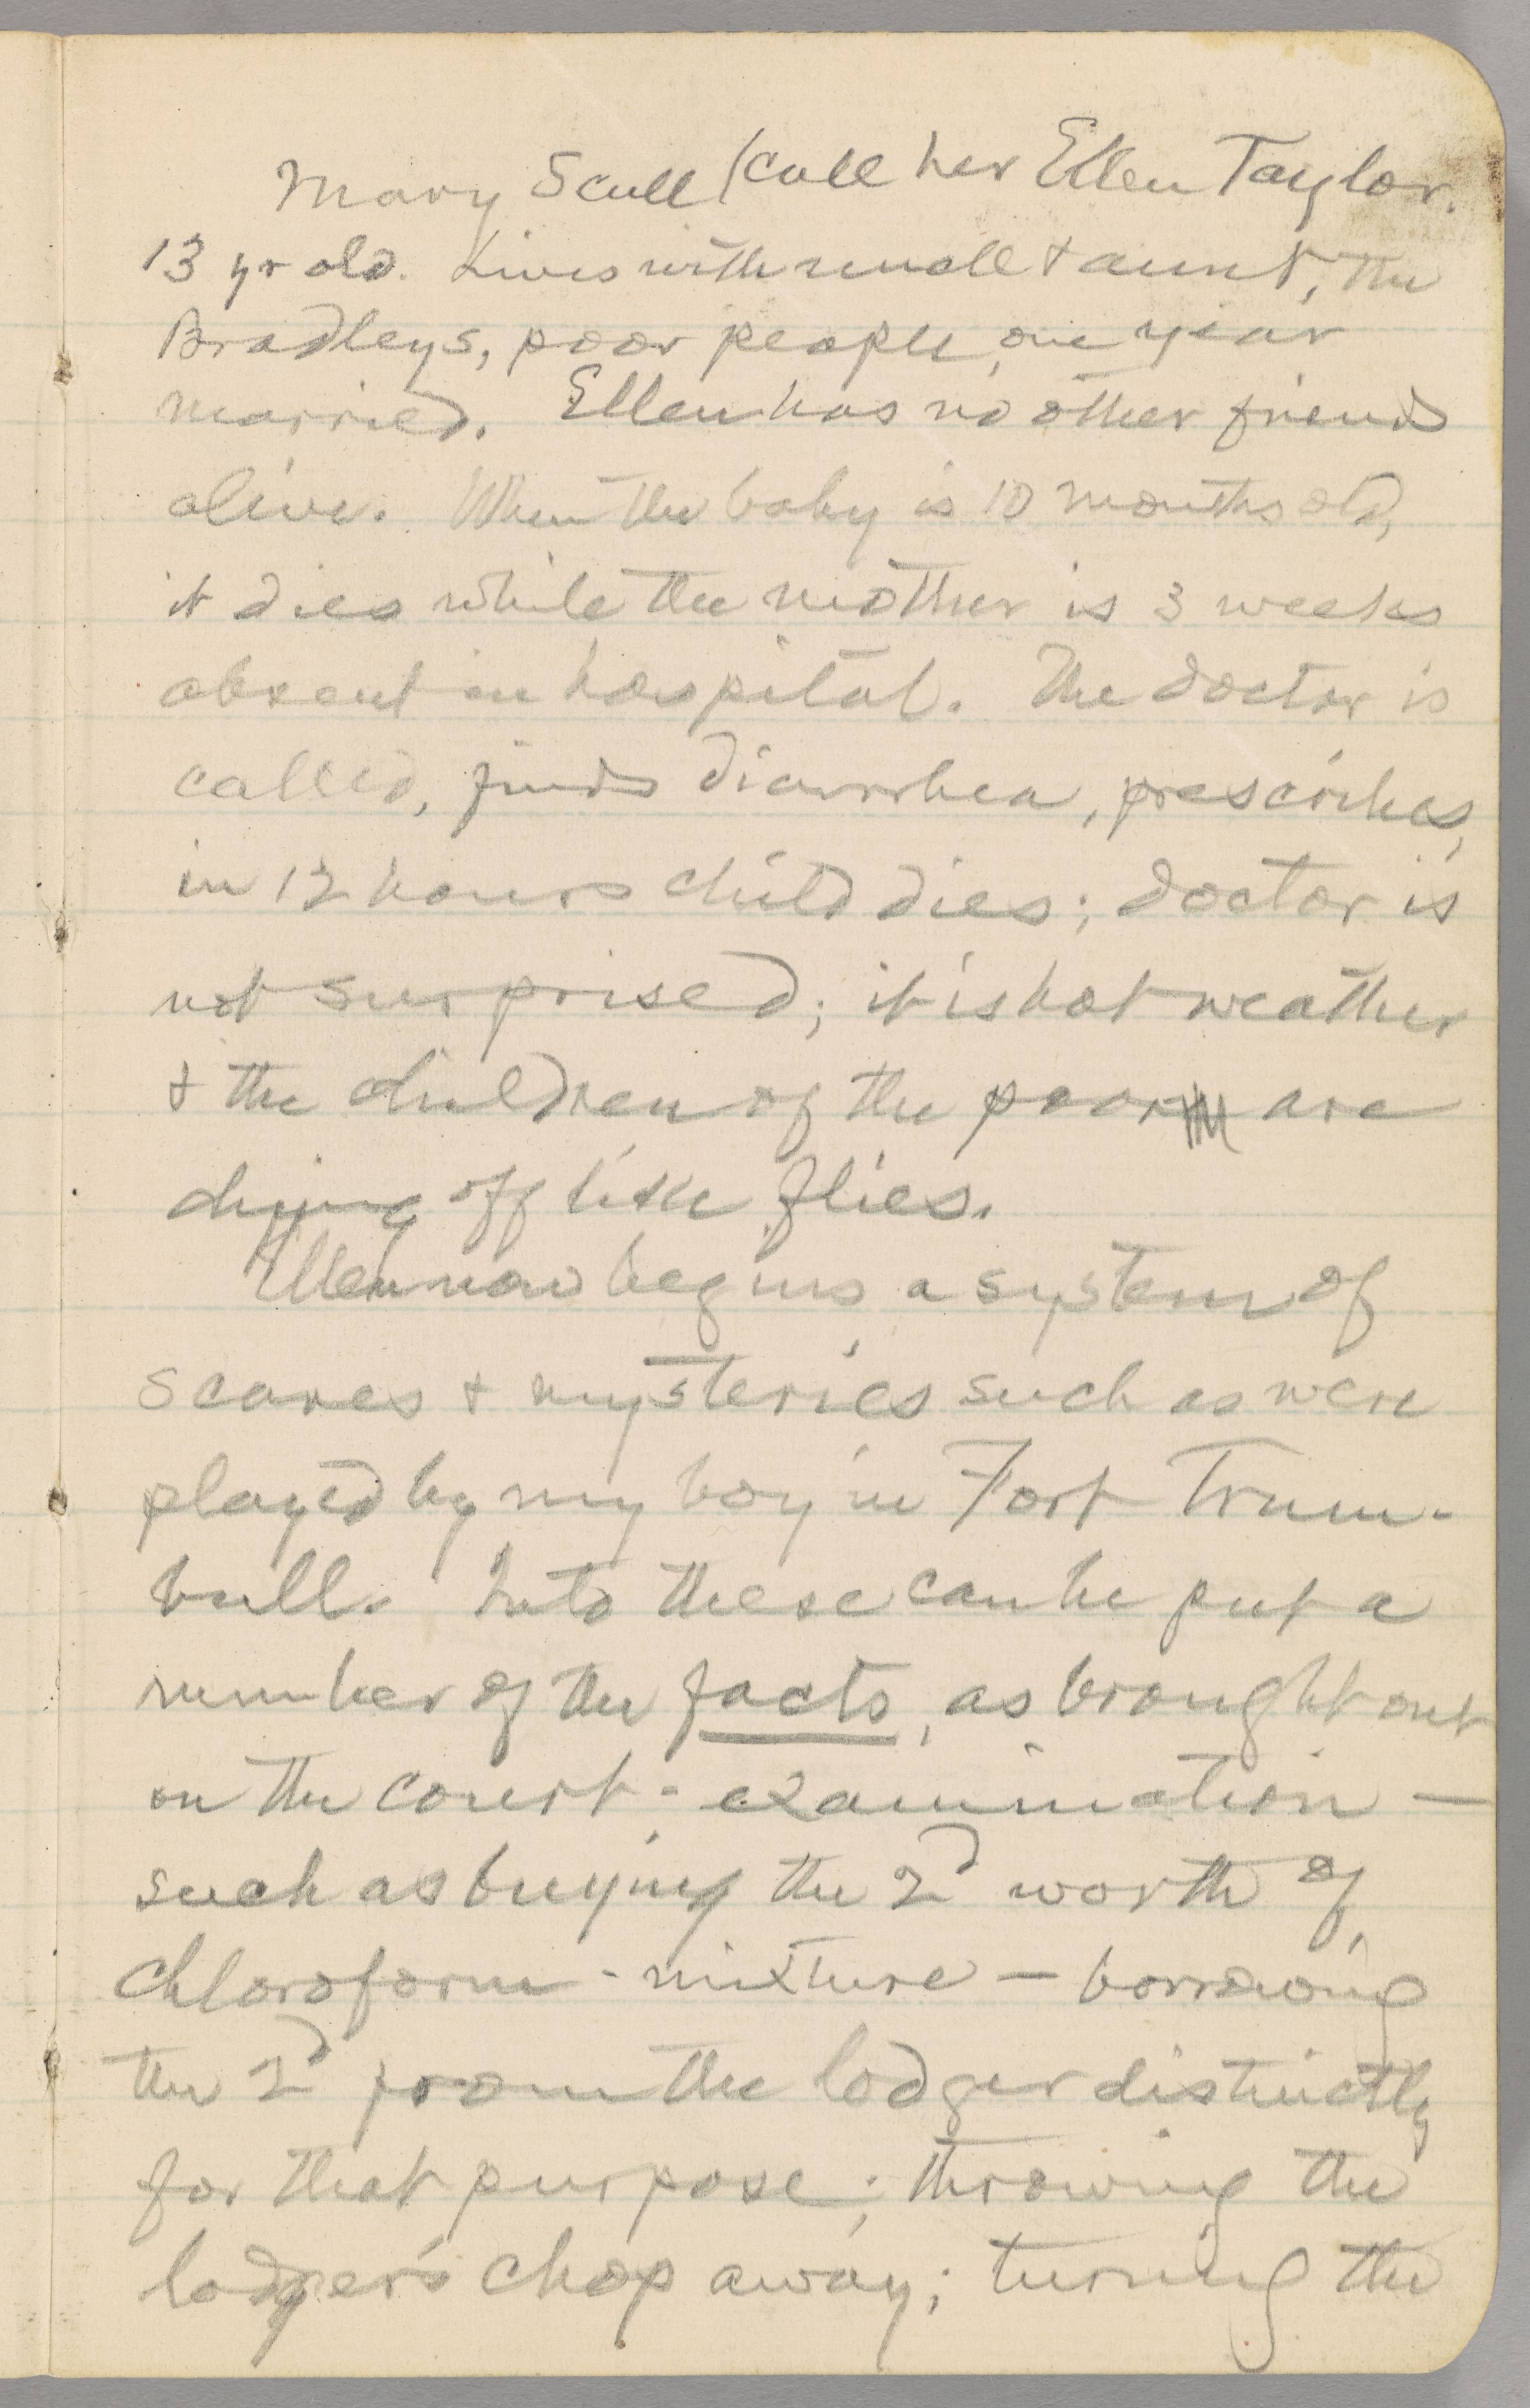 Mary Scull (call her Ellen Taylor.
13 yr old. Lives with uncle & aunt, the
Bradleys, poor people, one year
married. Ellen has no other friend
alive. When the baby is 10 months old,
it dies while the mother is 3 weeks
absent in hospital. The doctor is
called, finds diarrhea, prescribes,
in 12 hours child dies; doctor is
not surprised; it is hot weather
& the children of the poor are
dying off like flies.
Ellen now begins a system of
scares & mysteries such as were
played by my boy in Fort Trum-
bull. Into these can be put a
number of the facts, as brought out
on the court-examination —
such as buying the 2d worth of
chloroform-mixture — borrowing
the 2d from the lodger distinctly
for that purpose; throwing the
lodger's chop away; turning the